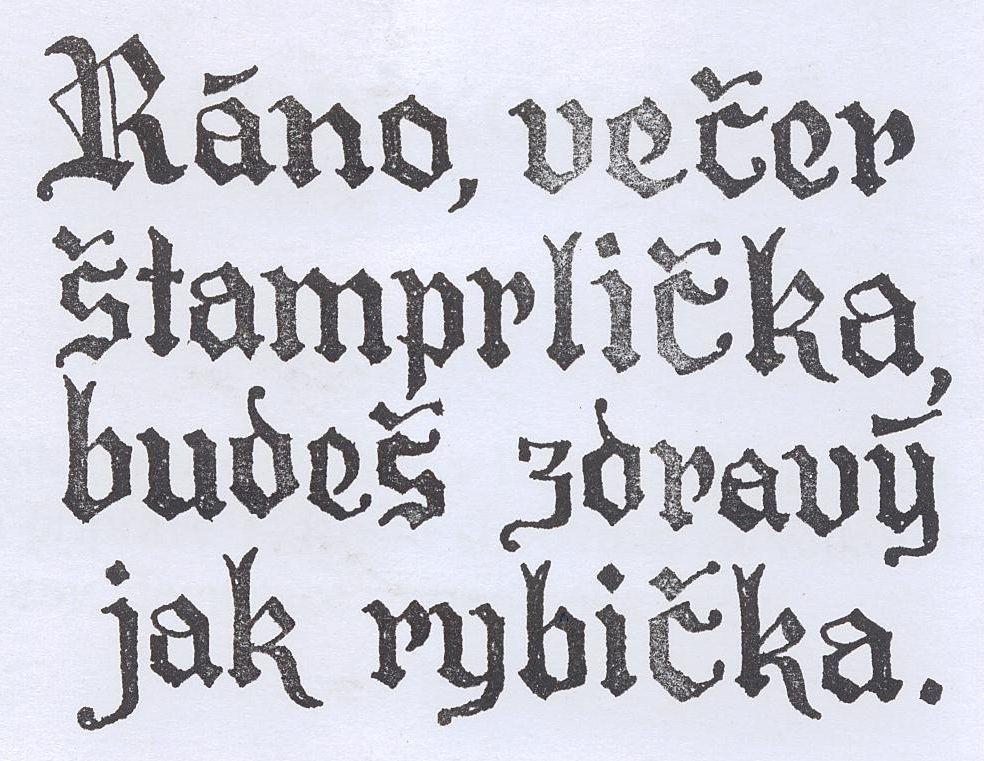 Ráno, večer
štamprlička,
budeš zdravý
jak rybička.